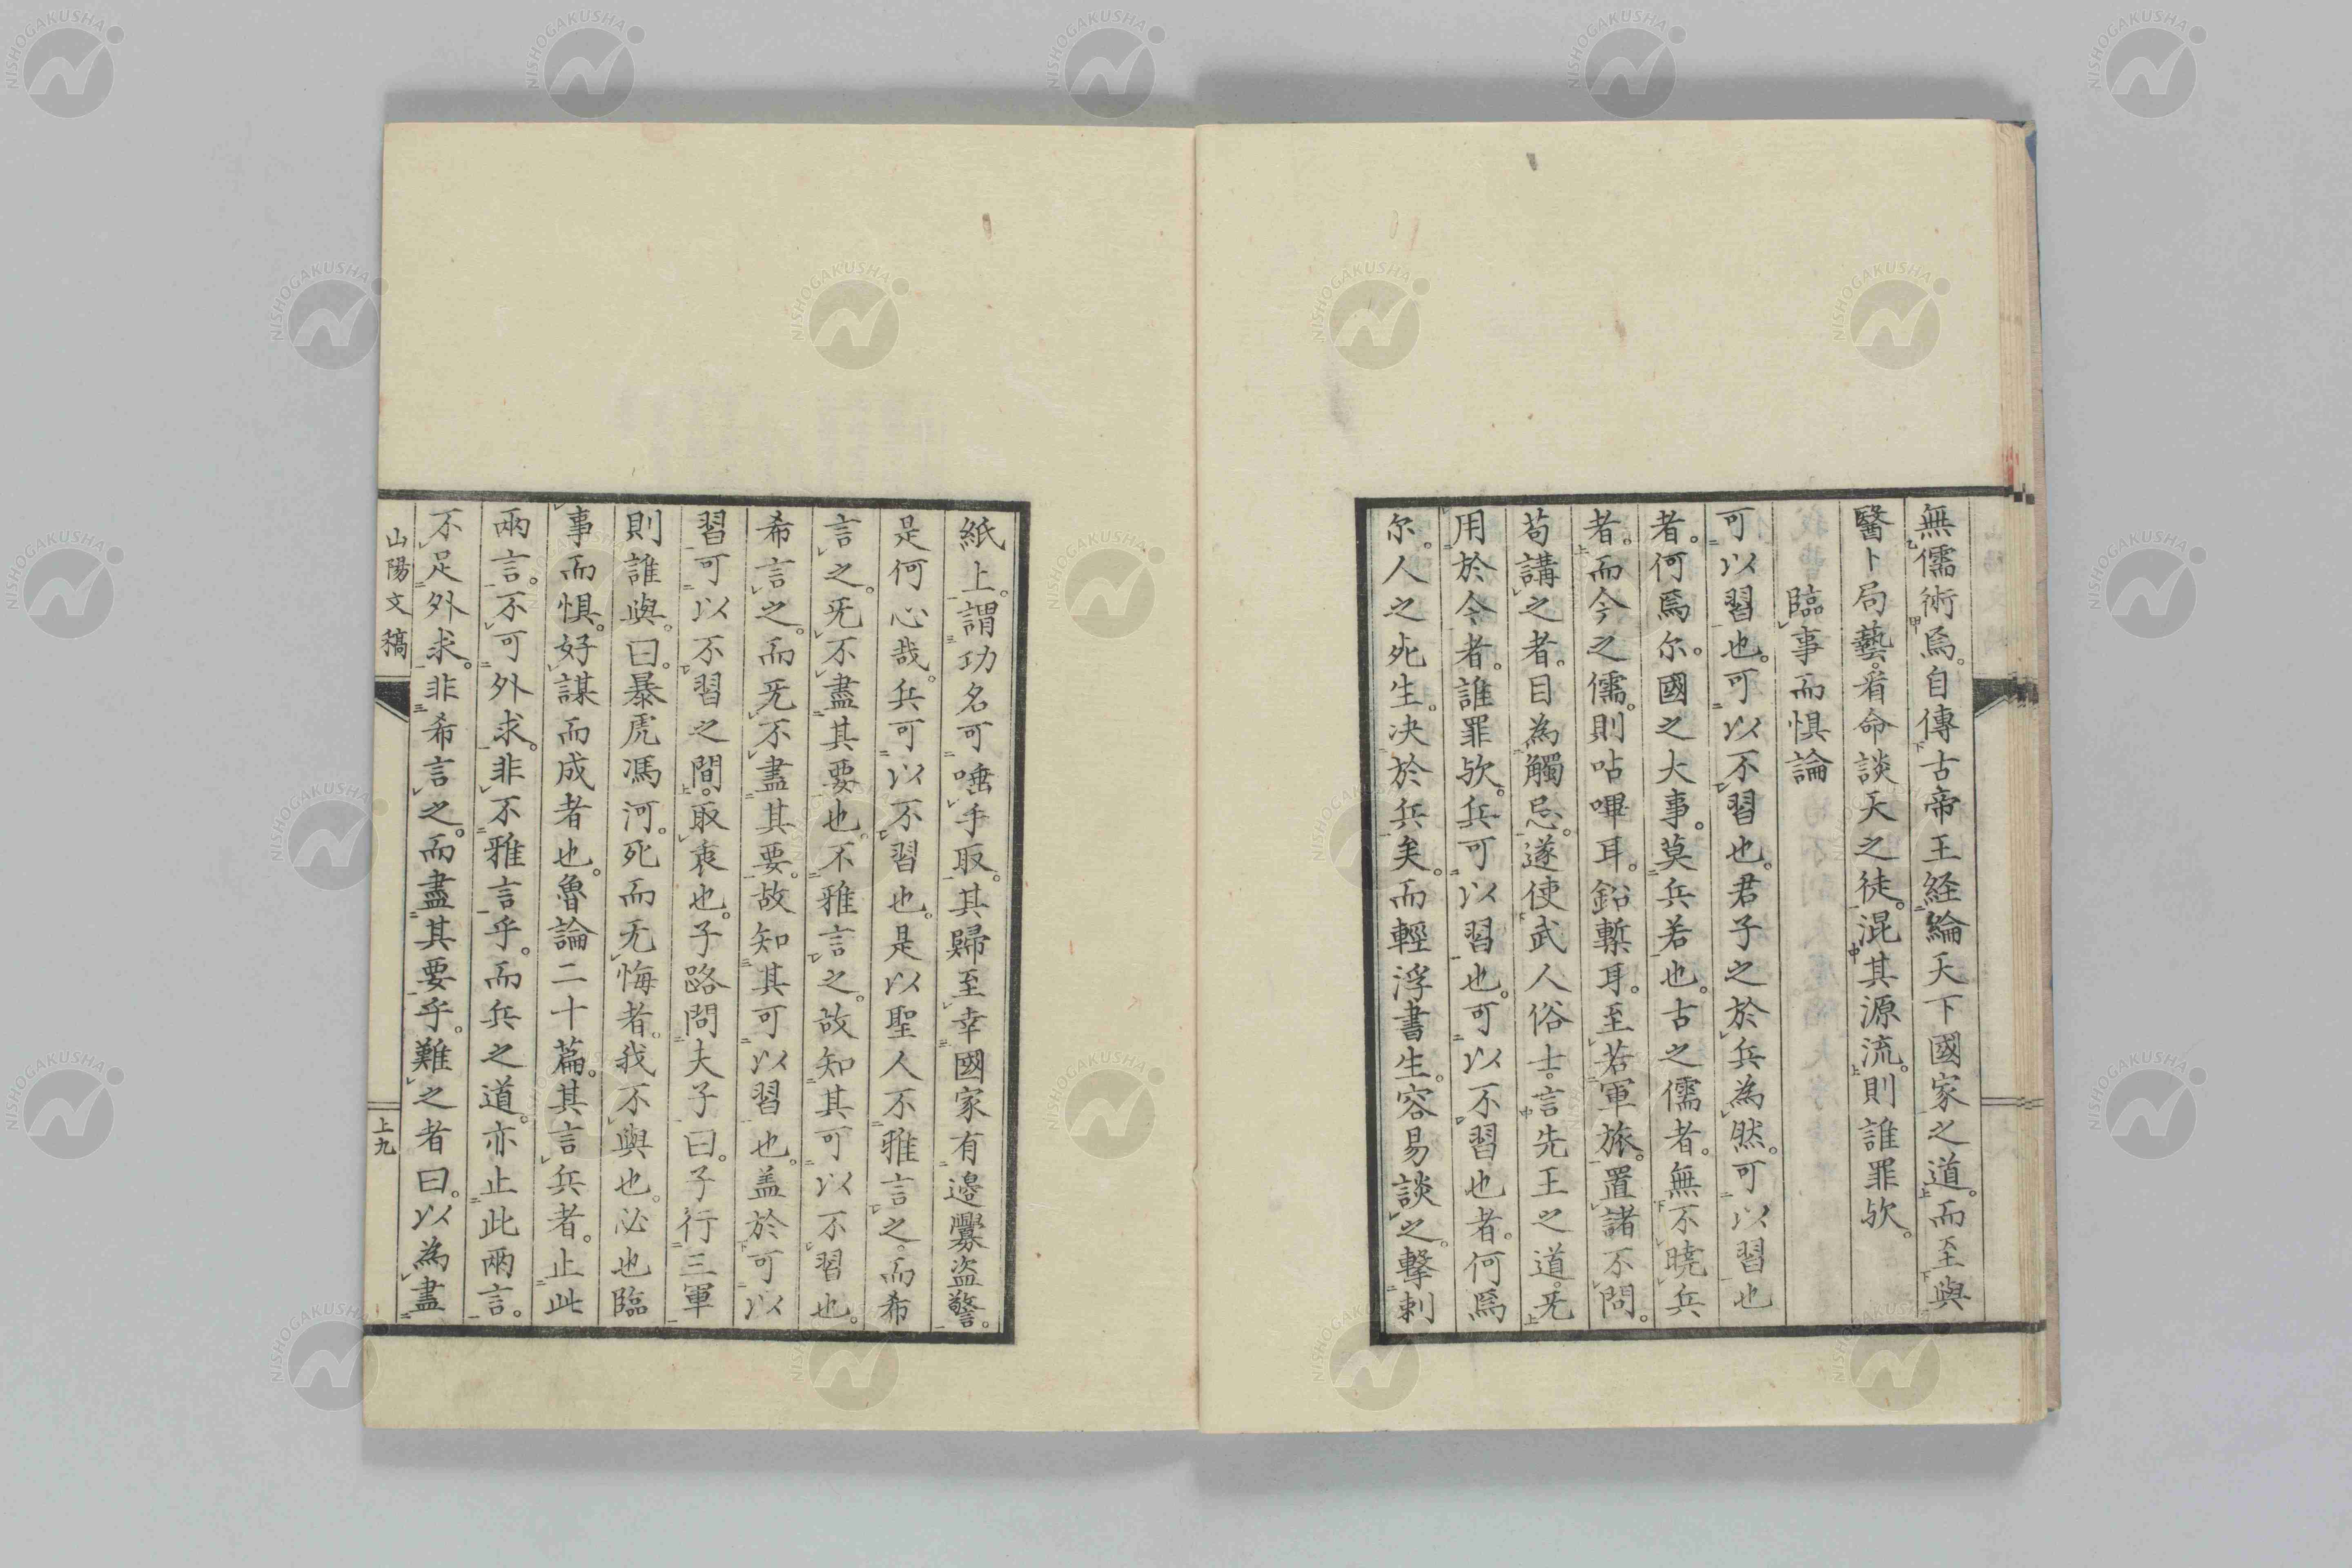 無儒術焉。自傳古帝王経綸天下國家之道。而至與
醫卜局藝。看命談天之徒。混其源流。則誰罪欤。
臨事而惧論
可以習也。可以不習也。君子之於兵為然。可以習也
者。何焉尔。國之大事。莫兵若也。古之儒者。無不曉兵
者。而今之儒。則呫嗶耳。鉛槧耳。至若軍旅。置諸不問。
苟講之者。目為觸忌。遂使武人俗士。言先王之道。旡
用於今者。誰罪欤。兵可以習也。可以不習也者。何焉
尔。人之死生。决於兵矣。而輕浮書生。容易談之。擊刺
紙上。謂功名可唾手取。其歸至幸國家有邊釁盗警。
是何心哉。兵可以不習也。是以聖人不雅言之。而希
言之。旡不盡其要也。不雅言之。故知其可以不習也。
希言之。而旡不盡其要。故知其可以習也。盖於可以
習可以不習之間。取衷也。子路問夫子曰。子行三軍
則誰與。曰。暴虎馮河。死而无悔者。我不與也。必也臨
事而惧。好謀而成者也。魯論二十篇。其言兵者。止此
兩言。不可外求。非不雅言乎。而兵之道。亦止此兩言。
不足外求。非希言之。而盡其要乎。難之者曰。以為盡
山陽文稿
上九
NISHOGAKUSHA